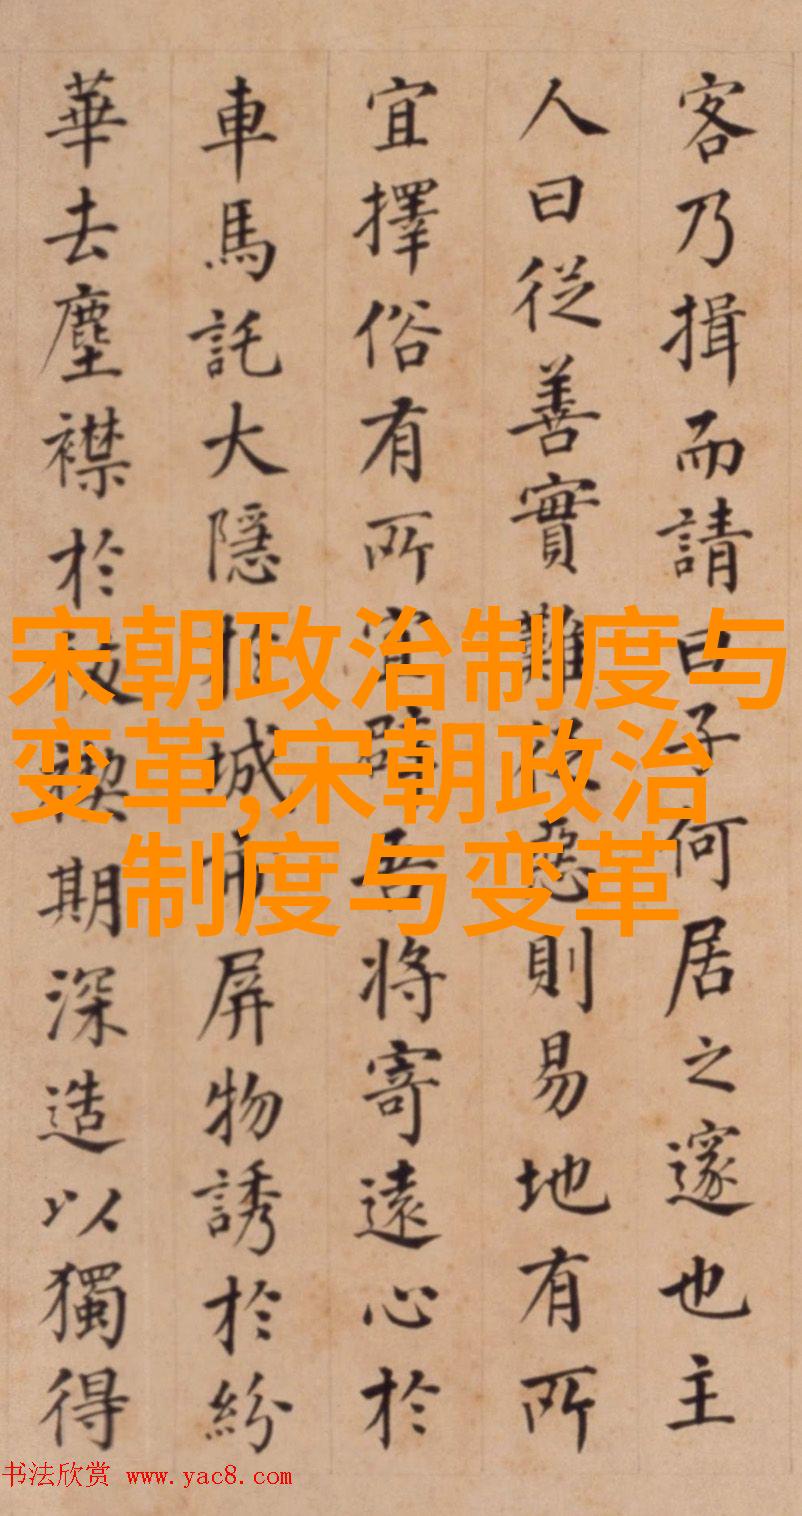 客乃揖而請曰子何居之邃也主
人曰從善實難從惡則易地有所
宜擇俗有所宜吾將寄遠心於
車馬託大隱於城市屏物誘於紛
華去塵襟於禊期深造以獨得
宋朝政治制度与
变革,宋朝政治
制度与变革
书法欣赏 www.yac8.com